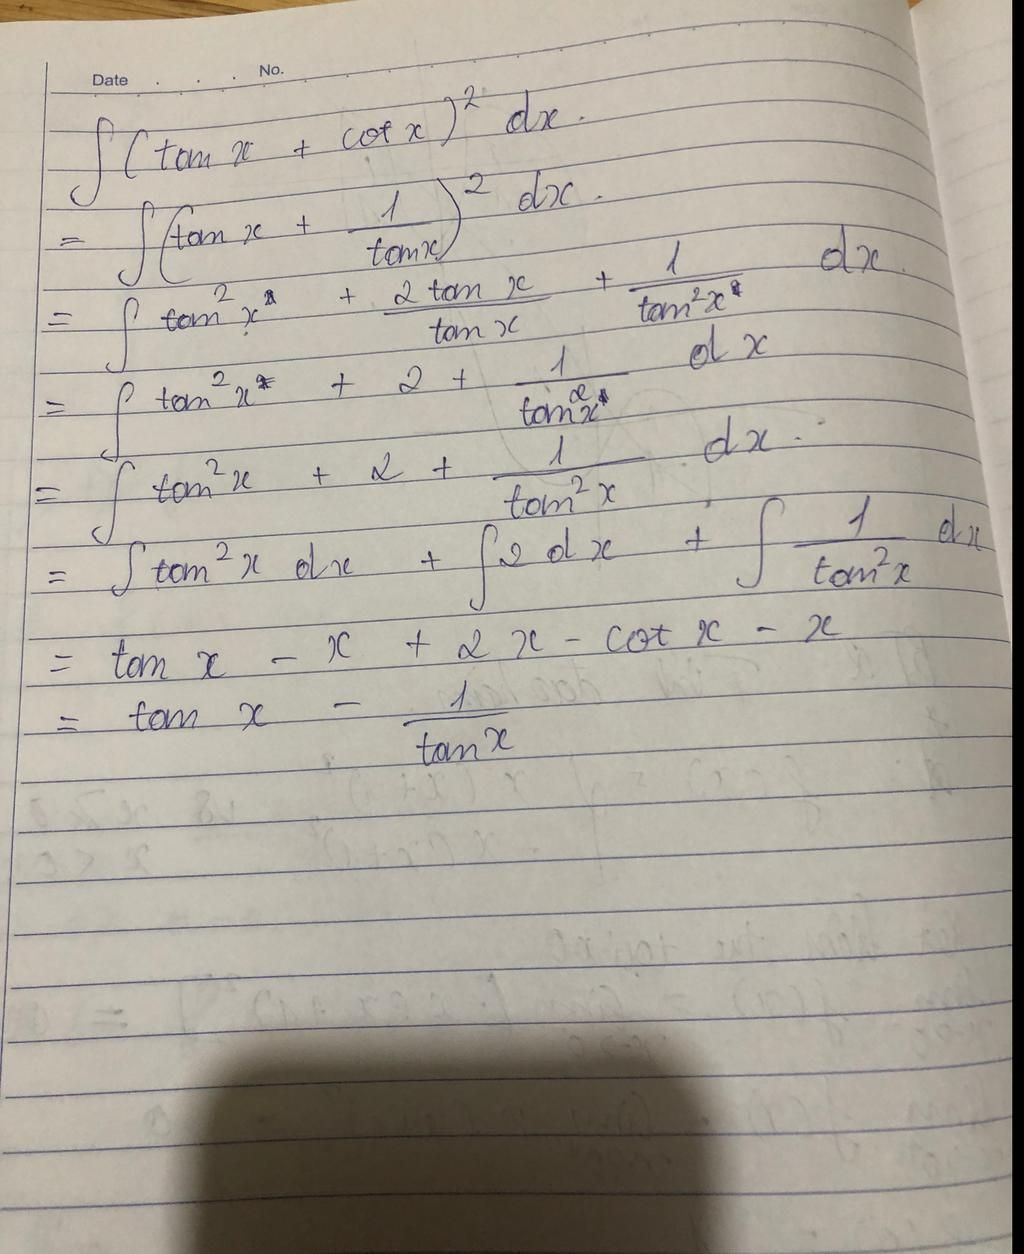 Date . . . No.
∫ (tan x + cot x)² dx.
= ∫ (tan x + 1/tan x)² dx.
= ∫ tan² x + 2 tan x / tan x + 1/tan² x dx.
= ∫ tan² x + 2 + 1/tan² x dx
= ∫ tan² x + 2 + 1/tan² x dx.
= ∫ tan² x dx + ∫ 2 dx + ∫ 1/tan² x dx
= tan x - x + 2x - cot x - x
= tan x - 1/tan x